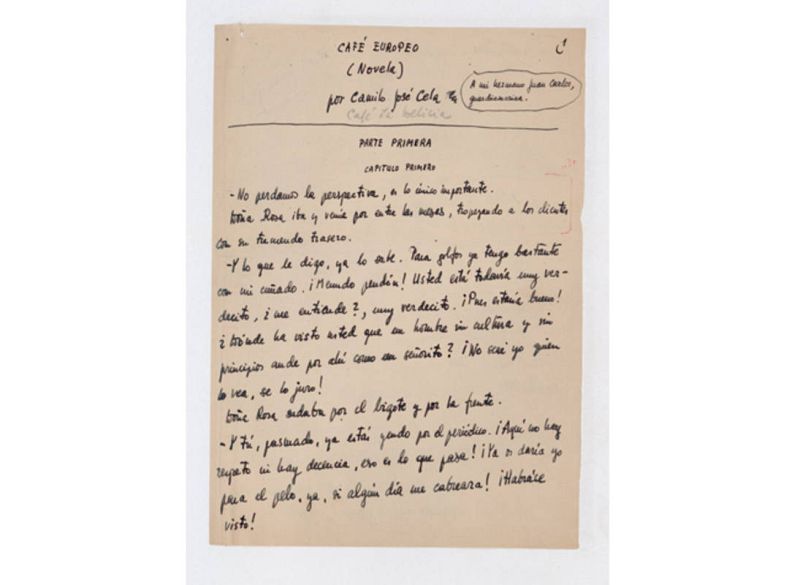 CAFÉ EUROPEO
(Novela)
por Camilo José Cela
A mi hermano Juan Carlos,
guardiamarina.
Café La Delicia
PARTE PRIMERA
CAPITULO PRIMERO
-No perdamos la perspectiva, es lo único importante.
Doña Rosa iba y venía por entre las mesas, tropezando a los clientes
con su tremendo trasero.
-Y lo que le digo, ya lo sabe. Para golfos ya tengo bastante
con mi cuñado. ¡Menudo pendón! Usted está todavía muy ver-
decito, ¿me entiende?, muy verdecito. ¡Pues estaría bueno!
¿Dónde ha visto usted que un hombre sin cultura y sin
principios ande por ahí como un señorito? ¡No seré yo quien
lo vea, se lo juro!
Doña Rosa sudaba por el bigote y por la frente.
-Y tú, pasmado, ya estás yendo por el periódico. ¡Aquí no hay
respeto ni hay decencia, eso es lo que pasa! ¡Ya os daría yo
para el pelo, ya, si algún día me cabreara! ¡Habráse
visto!